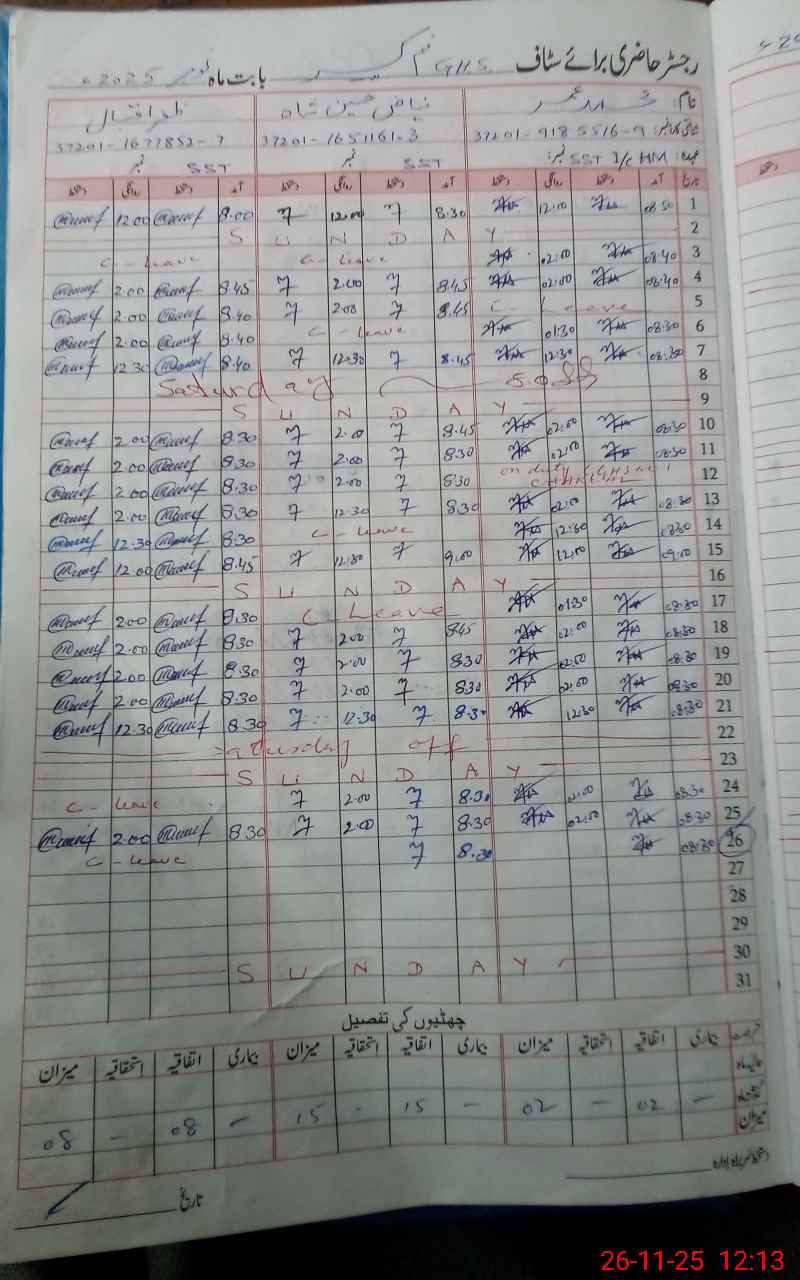 رجسٹر حاضری برائے سٹاف GHS بابت ماہ نومبر 2025ء
نام: محمد عمر نیاض حسین شاہ ظفر اقبال
37201-9185516-9 37201-1651161-3 37201-1677852-7
عہدہ: SST I/c HM نمبر: SST نمبر SST نمبر
تاریخ آمد دستخط روانگی دستخط آمد دستخط روانگی دستخط آمد دستخط روانگی دستخط
1 08:30 12:00 8.30 12.00 8.00 12.00
2 S U N D A Y
3 08:40 02:00 C-Leave C-Leave
4 08:40 02:00 8.45 2.00 8.45 2.00
5 C-Leave 8.45 2.00 8.40 2.00
6 08:30 01:30 C-Leave 8.40 2.00
7 08:30 12:30 8.45 12.30 8.40 12.30
8 Saturday off
9 S U N D A Y
10 08:30 02:00 8.45 2.00 8.30 2.00
11 08:30 02:00 8.30 2.00 8.30 2.00
12 on duty GGHS No 1 8.30 2.00 8.30 2.00
13 08:30 02:00 8.30 12.30 8.30 2.00
14 08:30 12:30 C-Leave 8.30 12.30
15 09:00 12:00 9.00 12.30 8.45 12.00
16 S U N D A Y
17 08:30 01:30 C-Leave 8.30 2.00
18 08:30 02:00 8.45 2.00 8.30 2.00
19 08:30 02:00 8.30 2.00 8.30 2.00
20 08:30 02:00 8.30 2.00 8.30 2.00
21 08:30 12:30 8.30 12.30 8.30 12.30
22 Saturday off
23 S U N D A Y
24 08:30 02:00 8.30 2.00 C-Leave
25 08:30 02:00 8.30 2.00 8.30 2.00
26 08:30 8.30 C-Leave
27
28
29
30 S U N D A Y
31
چھٹیوں کی تفصیل
رخصت بیماری اتفاقیہ استحقاقیہ میزان بیماری اتفاقیہ استحقاقیہ میزان بیماری اتفاقیہ استحقاقیہ میزان
حالیہ ماہ
گذشتہ ماہ - 02 - 02 - 15 - 15 - 08 - 08
میزان
دستخط سربراہ ادارہ
تاریخ
26-11-25 12:13